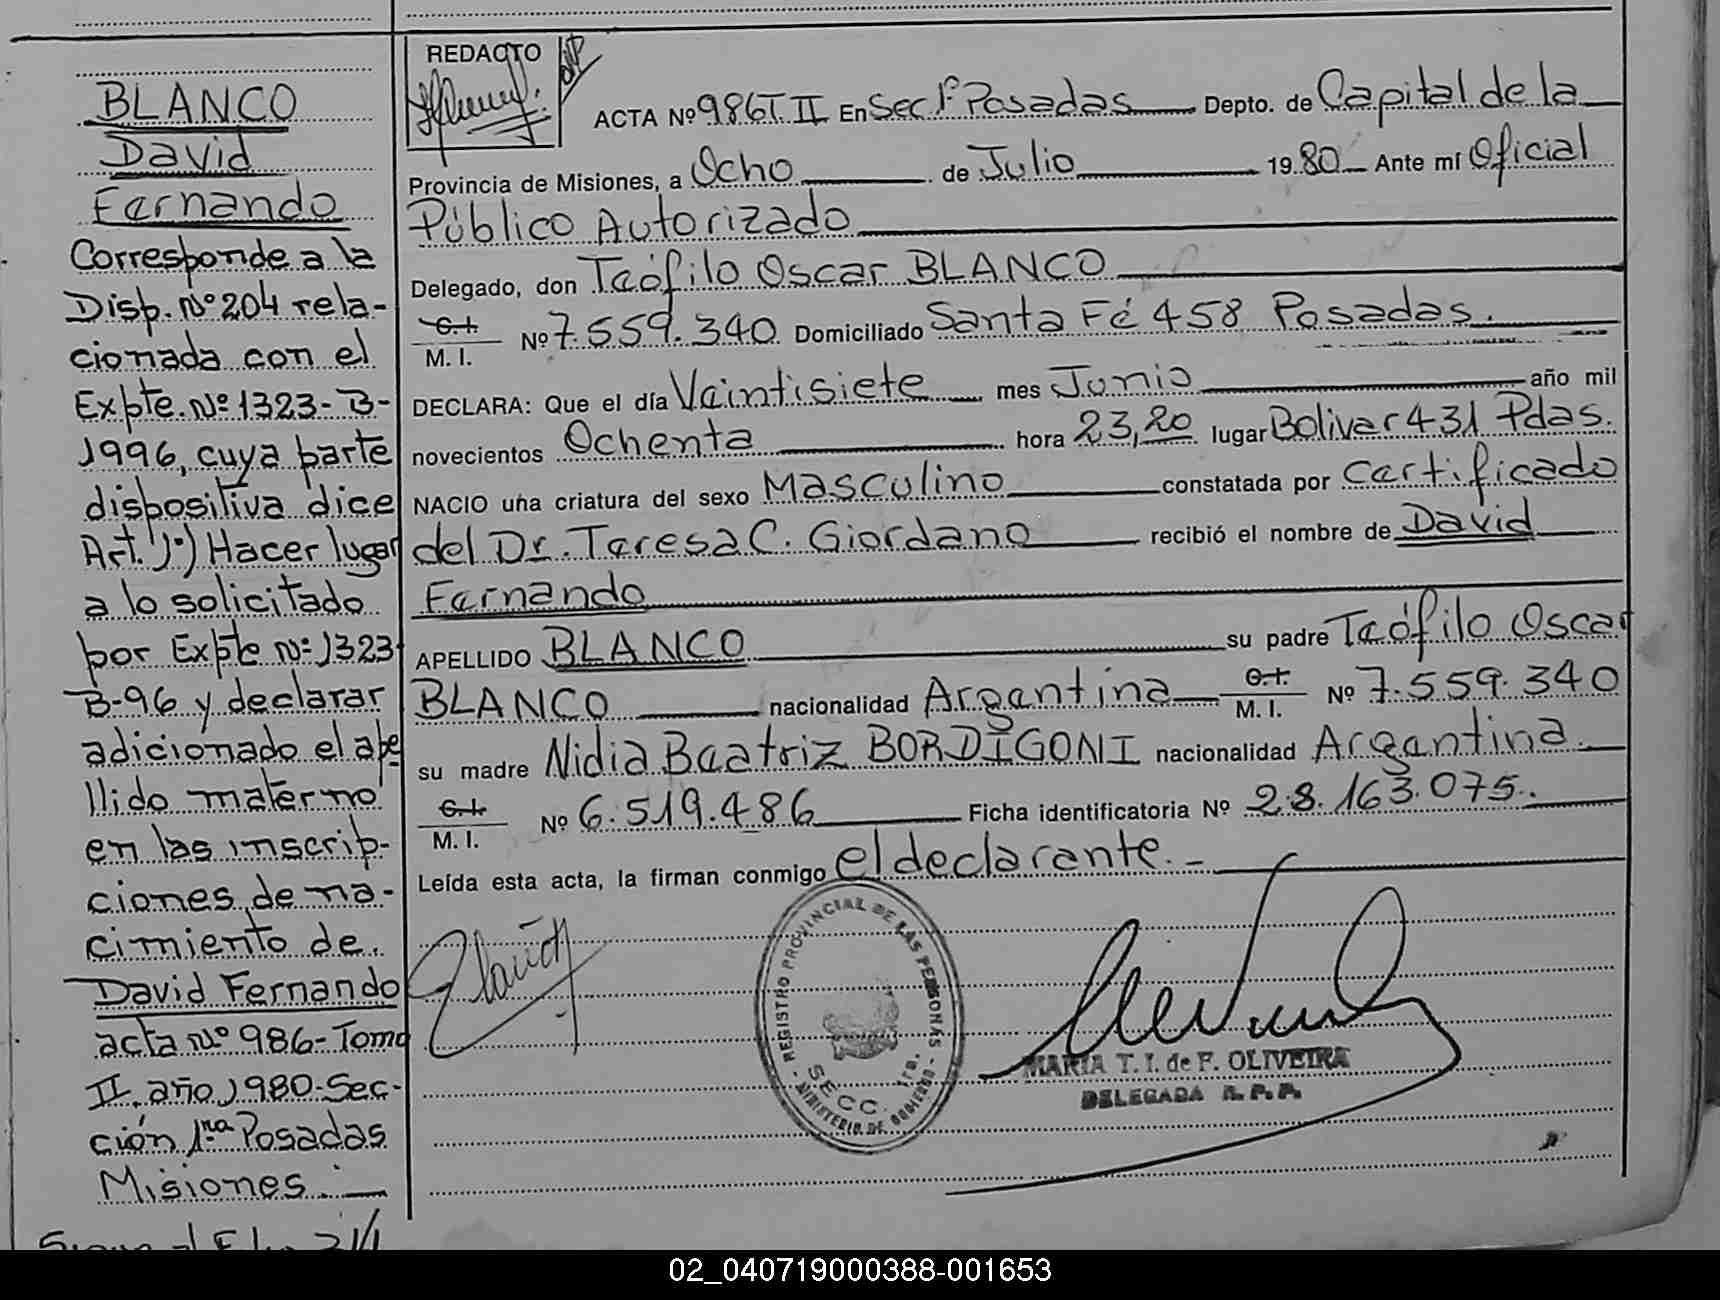 BLANCO
David
Fernando
Corresponde a la
Disp. Nº 204 rela-
cionada con el
Expte. Nº 1323-B-
1996, cuya parte
dispositiva dice
Art. 1º) Hacer lugar
a lo solicitado
por Expte Nº 1323
B-96 y declarar
adicionado el ape
llido materno
en las inscrip-
ciones de na-
cimiento de.
David Fernando
acta Nº 986-Tomo
II año 1980-Sec-
ción 1ra Posadas
Misiones.
REDACTO
ACTA Nº 986 T. II En Sec 1ª Posadas Depto. de Capital de la
Provincia de Misiones, a Ocho de Julio 19 80 Ante mí Oficial
Público Autorizado
Delegado, don Teófilo Oscar BLANCO
C.I.
M. I. Nº 7.559.340 Domiciliado Santa Fé 458 Posadas.
DECLARA: Que el día Veintisiete mes Junio año mil
novecientos Ochenta hora 23,20 lugar Bolivar 431 Pdas.
NACIO una criatura del sexo Masculino constatada por Certificado
del Dr. Teresa C. Giordano recibió el nombre de David
Fernando
APELLIDO BLANCO su padre Teófilo Oscar
BLANCO nacionalidad Argentina C.I. M. I. Nº 7.559.340
su madre Nidia Beatriz BORDIGONI nacionalidad Argentina.
C.I.
M. I. Nº 6.519.486 Ficha identificatoria Nº 28.163.075.
Leída esta acta, la firman conmigo el declarante.-
REGISTRO PROVINCIAL DE LAS PERSONAS
- MINISTERIO DE GOBIERNO -
SECC. 1ra.
MARIA T. I. de F. OLIVEIRA
DELEGADA R. P. P.
02_040719000388-001653